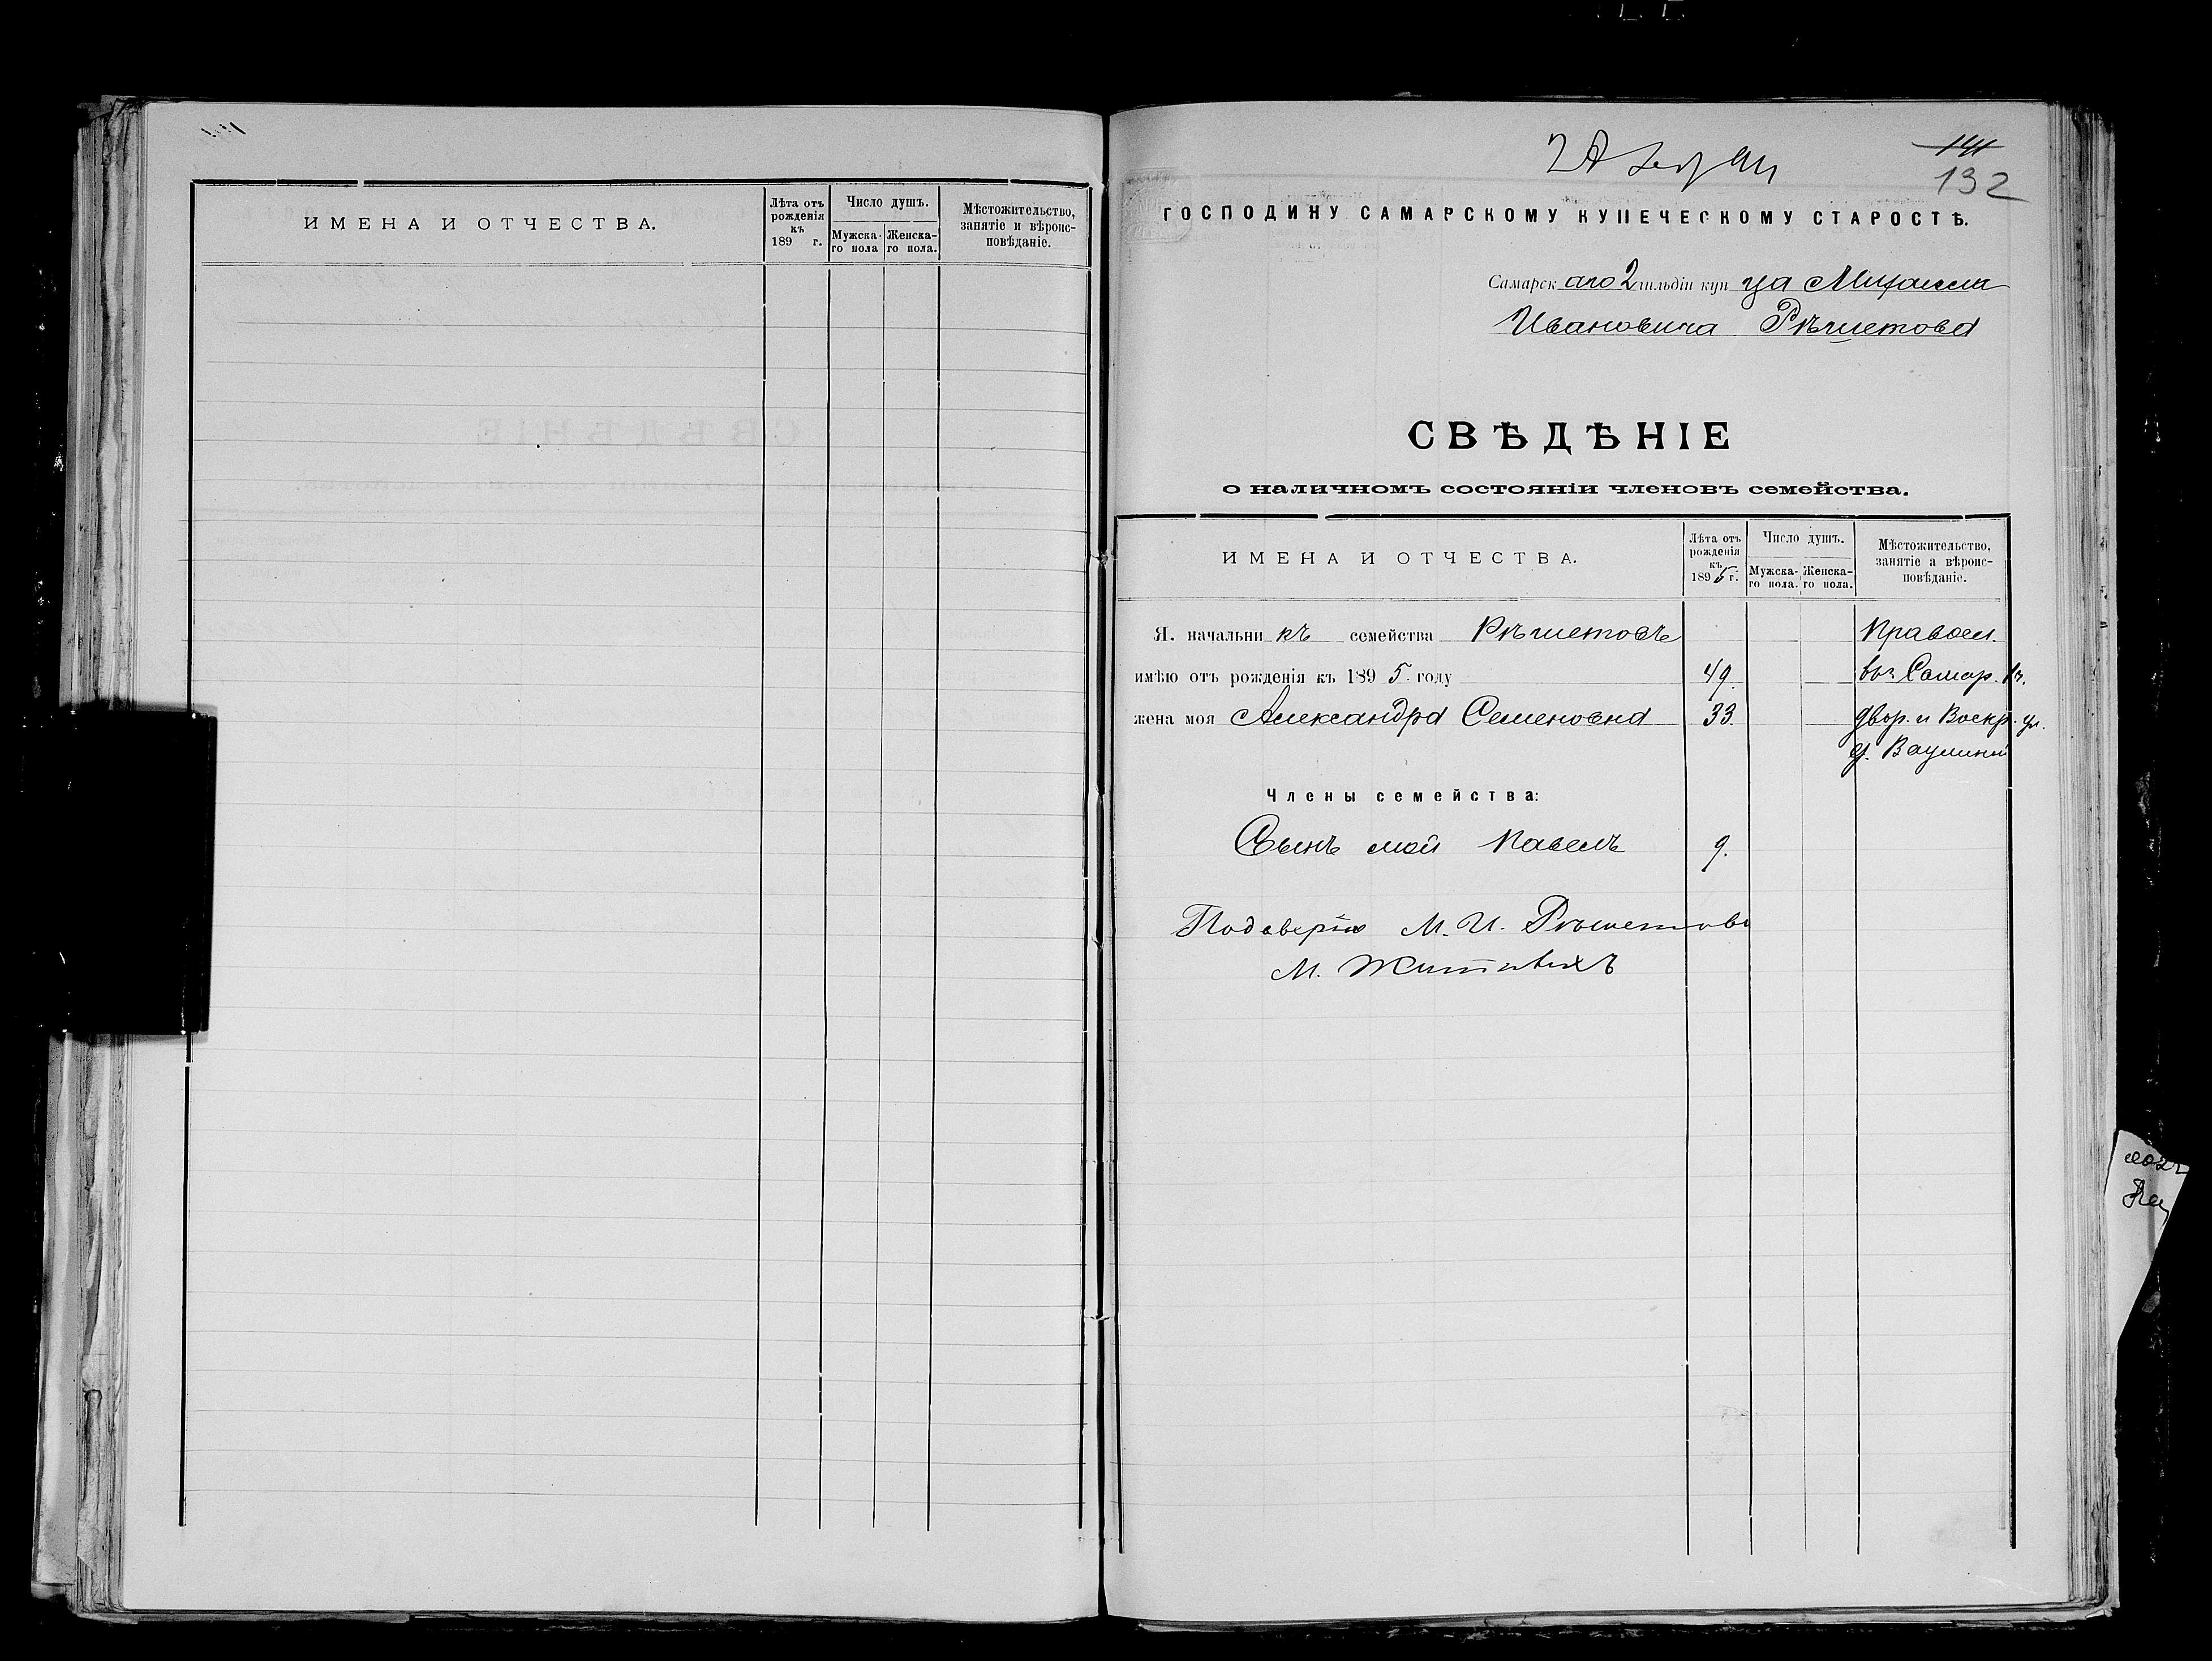 ИМЕНА И ОТЧЕСТВА.
Лѣта отъ рожденія къ 189 г.
Число душъ.
Мужска-го пола
Женска-го пола.
Мѣстожительство, занятіе и вѣроис-повѣданіе.
141
132
ГОСПОДИНУ САМАРСКОМУ КУПЕЧЕСКОМУ СТАРОСТѢ.
Самарскаго 2 гильдіи купца Михаила
Ивановича Рѣшетова
СВѢДѢНІЕ
о наличномъ состояніи членовъ семейства.
ИМЕНА И ОТЧЕСТВА.
Лѣта отъ рожденія къ 1895 г.
Число душъ.
Мужска-го пола.
Женска-го пола.
Мѣстожительство, занятіе а вѣроис-повѣданіе.
Я. начальникъ семейства Рѣшетовъ Правосл.
имѣю отъ рожденія къ 1895 году 49. въ Самар.
жена моя Александра Семеновна 33. двор. и Воскр. ул.
д.
Члены семейства:
Сынъ мой Павелъ 9.
М. И. Рѣшетова
М.